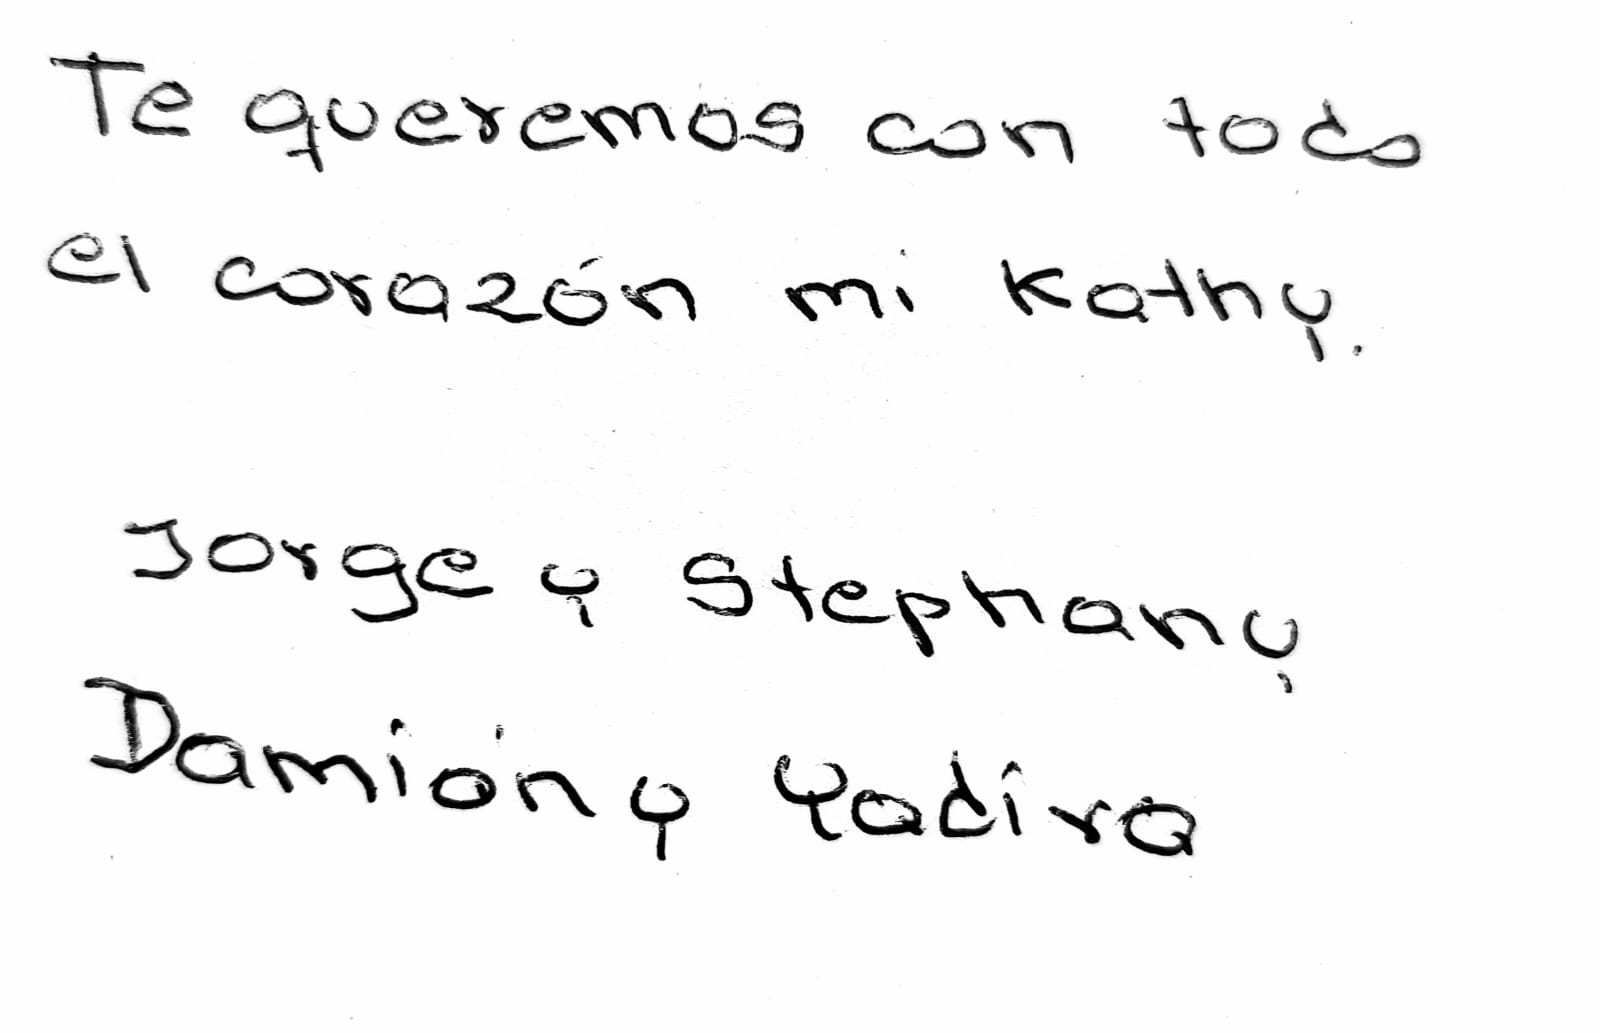 Te queremos con todo
el corazón mi Kathy.
Jorge y Stephany
Damián y Yadira